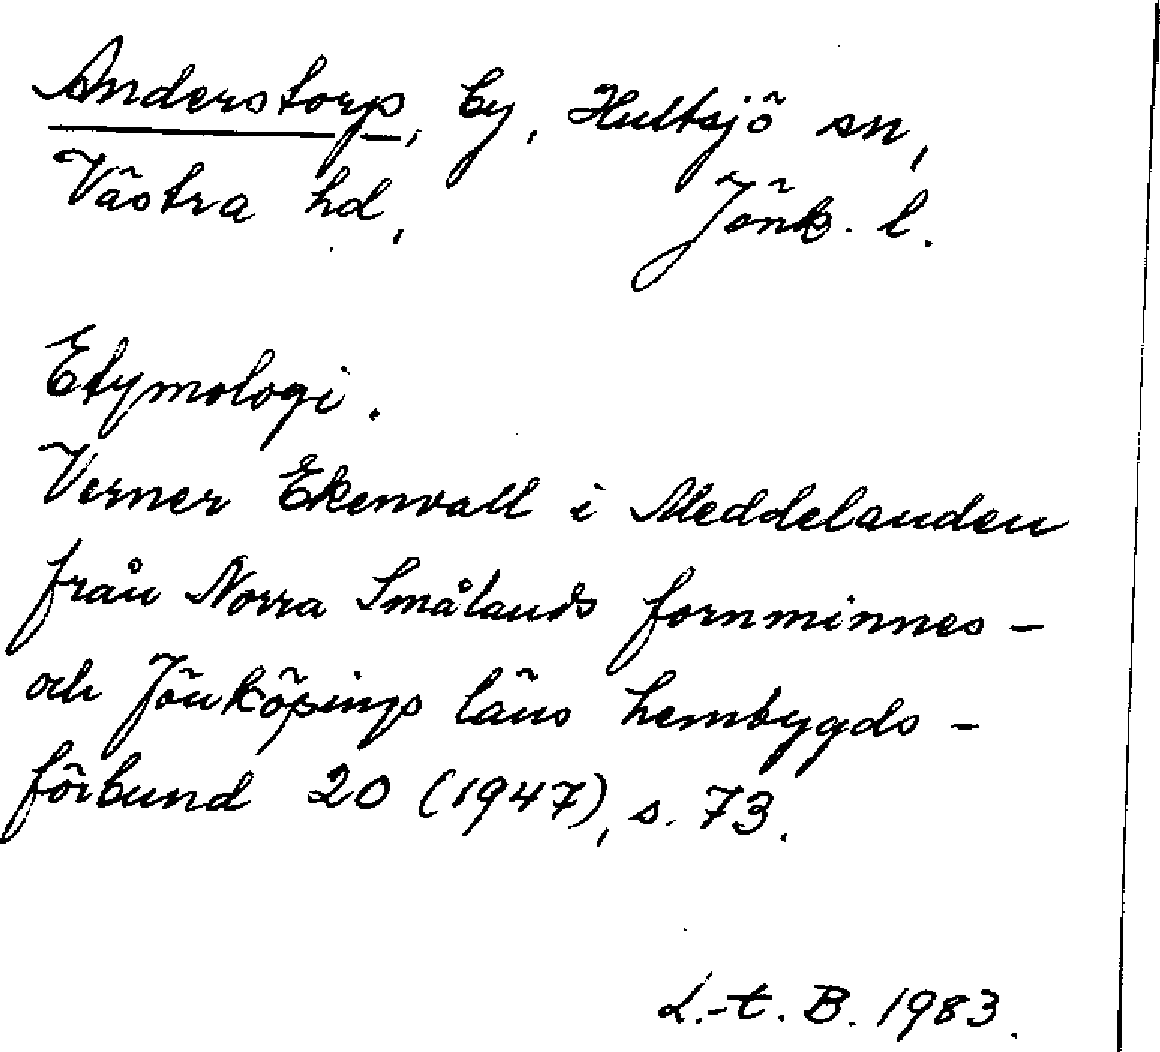 Anderstorp, by, Hultsjö sn,
Västra hd, Jönk. l.
Etymologi.
Verner Ekenvall i Meddelanden
från Norra Smålands fornminnes-
och Jönköpings läns hembygds-
förbund 20 (1947), s. 73.
L.-t. B. 1983.